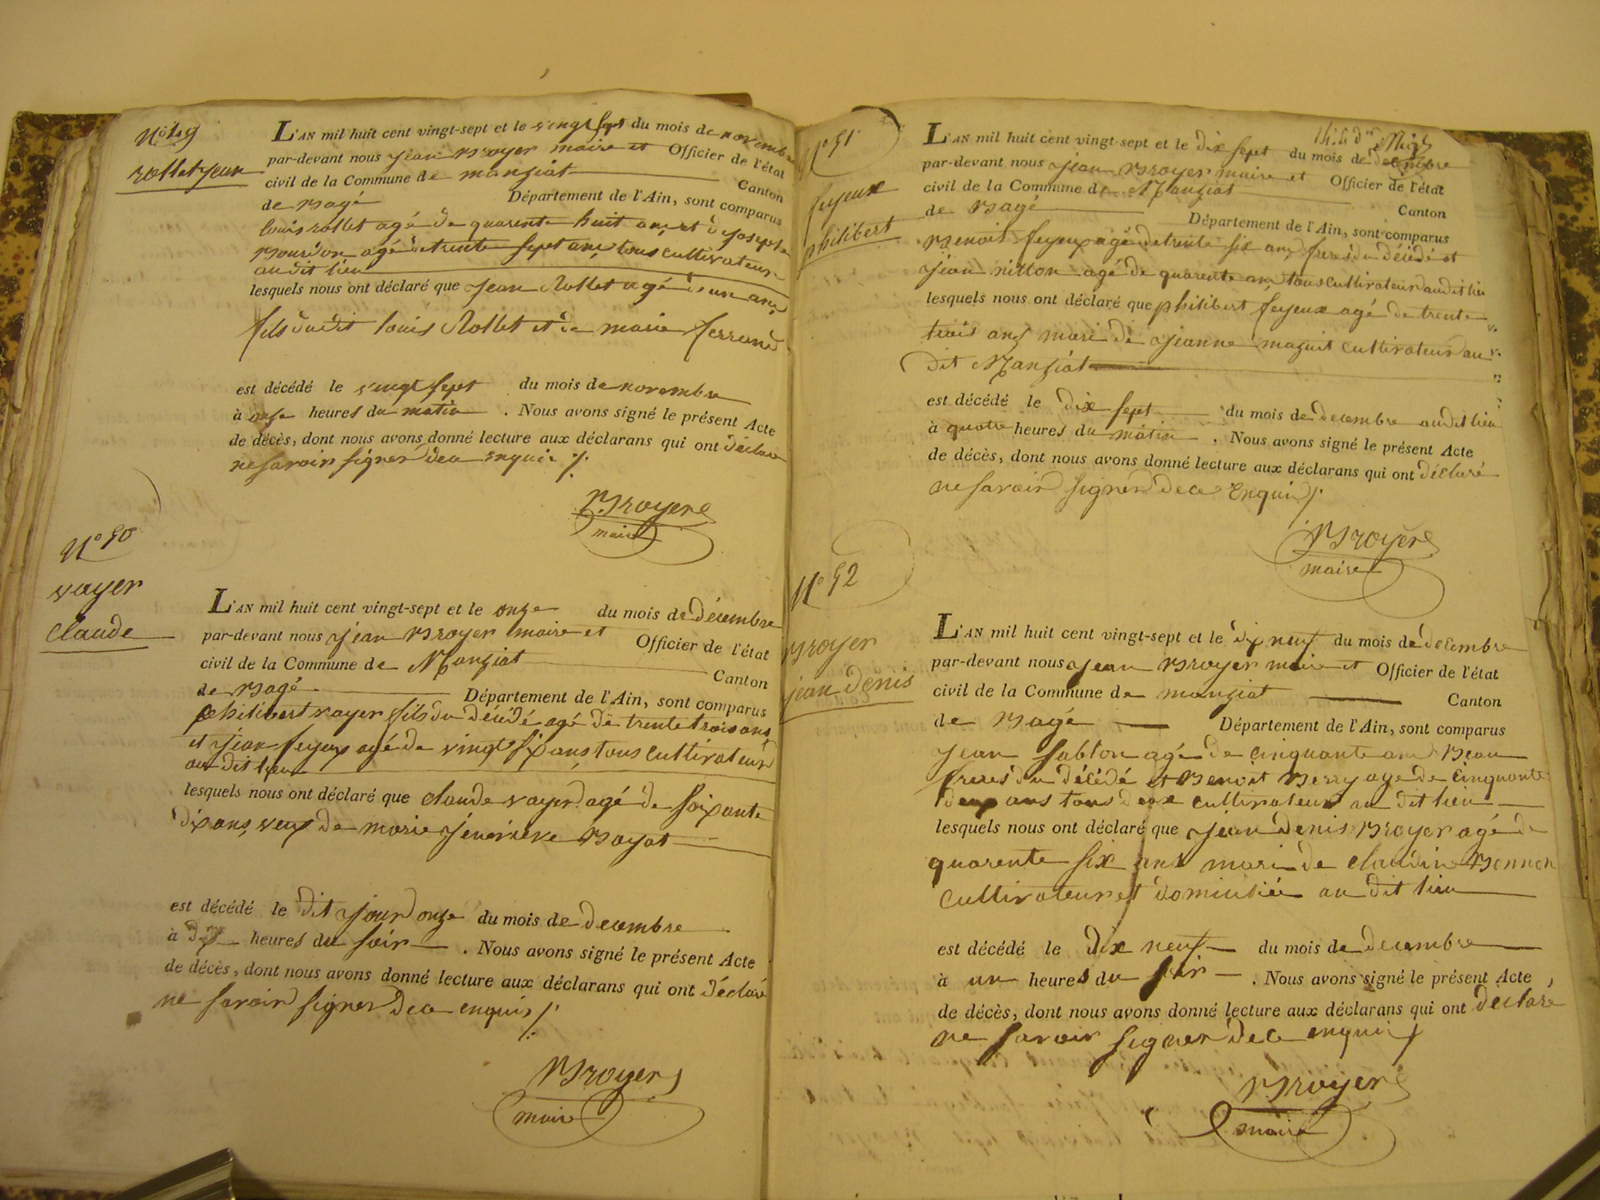 N° 49
rollet jean
L'AN mil huit cent vingt-sept et le vingt sept du mois de novembre
par-devant nous jean Broyer maire et Officier de l'état
civil de la Commune de manziat Canton
de Bagé Département de l'Ain, sont comparus
louis rollet agé de quarente huit ans et joseph
Bourdon agé de trente sept ans tous cultivateurs
au dit lieu
lesquels nous ont déclaré que jean Rollet agé d'un ans
fils dudit louis Rollet et de marie ferrand
est décédé le vingt sept du mois de novembre
à onze heures du matin . Nous avons signé le présent Acte
de décès, dont nous avons donné lecture aux déclarans qui ont déclaré
ne savoir signer de ce enquis
Broyer
maire
N° 50
vayer
claude
L'AN mil huit cent vingt-sept et le onze du mois de décembre
par-devant nous jean Broyer maire et Officier de l'état
civil de la Commune de Manziat Canton
de Bagé Département de l'Ain, sont comparus
philibert vayer fils du décédé agé de trente trois ans
et jean feyeux agé de vingt six ans tous cultivateurs
au dit lieu
lesquels nous ont déclaré que claude vayer agé de soixante
dix ans veuf de marie jenevieve Bayat
est décédé le dit jour onze du mois de decembre
à dix heures du soir . Nous avons signé le présent Acte
de décès, dont nous avons donné lecture aux déclarans qui ont déclaré
ne savoir signer de ce enquis
Broyer
maire
N° 51
feyeux
philibert
L'AN mil huit cent vingt-sept et le dix sept du mois de decembre
par-devant nous jean Broyer maire et Officier de l'état
civil de la Commune de Manziat Canton
de Bagé Département de l'Ain, sont comparus
Benoit feyeux agé de trente six ans frere du décédé et
jean agé de quarente ans tous cultivateurs au dit lieu
lesquels nous ont déclaré que philibert feyeux agé de trente
trois ans mari de jeanne cultivateur au
dit Manziat
est décédé le dix sept du mois de decembre au dit lieu
à quatre heures du matin . Nous avons signé le présent Acte
de décès, dont nous avons donné lecture aux déclarans qui ont déclaré
ne savoir signer de ce enquis
Broyer
maire
N° 52
Broyer
jean denis
L'AN mil huit cent vingt-sept et le dix neuf du mois de decembre
par-devant nous jean Broyer maire et Officier de l'état
civil de la Commune de manziat Canton
de Bagé Département de l'Ain, sont comparus
jean sablon agé de cinquante ans Beau
freres du décédé et Benoit Berry agé de cinquante
deux ans tous deux cultivateurs au dit lieu
lesquels nous ont déclaré que jean denis Broyer agé de
quarente six ans mari de claudine
cultivateur et domicilié au dit lieu
est décédé le dix neuf du mois de decembre
à un heures du soir . Nous avons signé le présent Acte
de décès, dont nous avons donné lecture aux déclarans qui ont déclaré
ne savoir signer de ce enquis
Broyer
maire